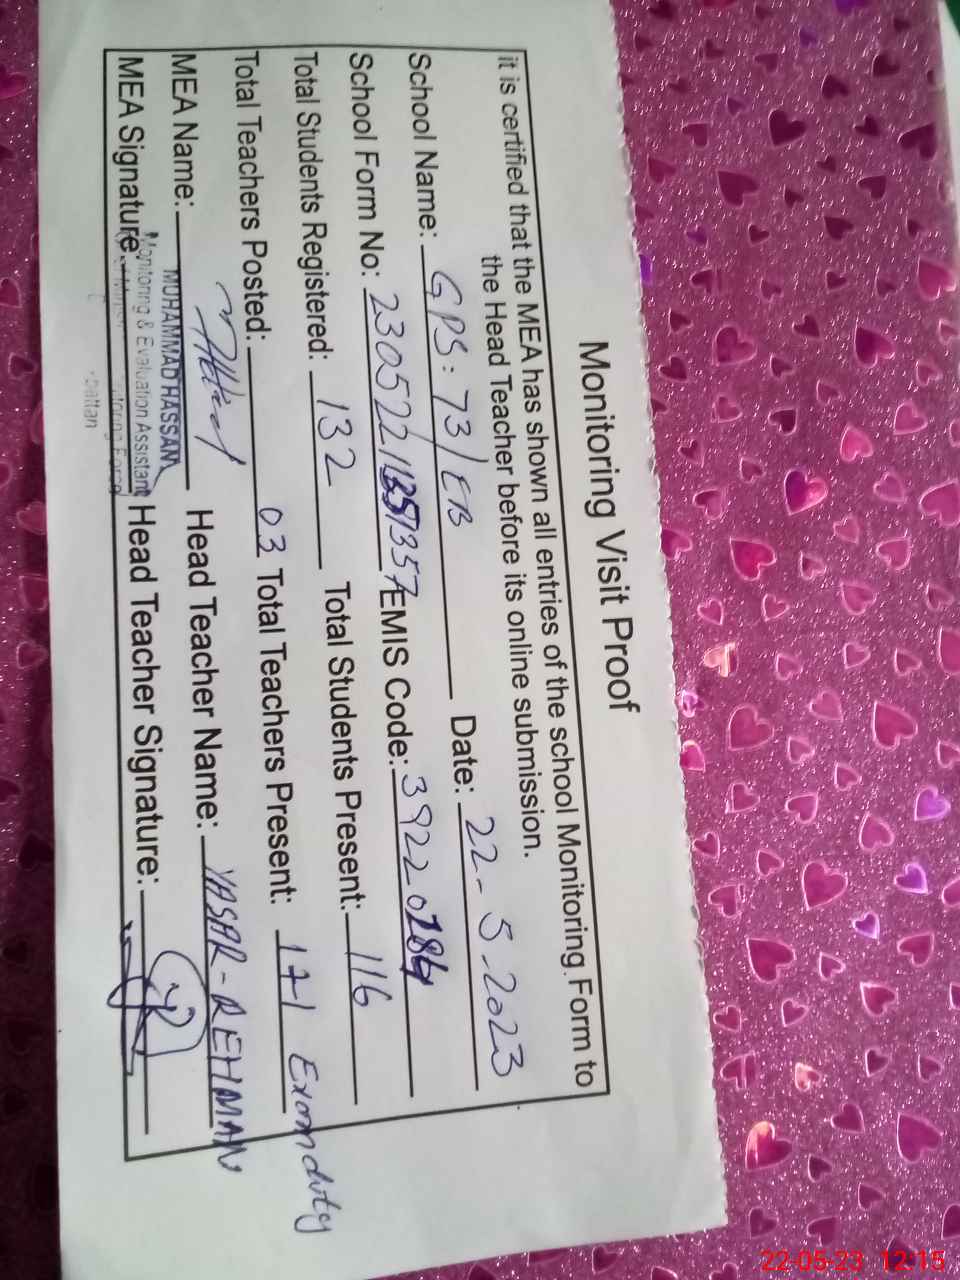 Monitoring Visit Proof
it is certified that the MEA has shown all entries of the school Monitoring Form to
the Head Teacher before its online submission.
School Name: GPS: 73/EB Date: 22-5-2023
School Form No: 230522 1357 EMIS Code: 39220184
Total Students Registered: 132 Total Students Present: 116
Total Teachers Posted: 03 Total Teachers Present: 1+1 Exam duty
MEA Name: Head Teacher Name: YASAR-REHMAN
MUHAMMAD HASSAN
Monitoring & Evaluation Assistant
MEA Signature Head Teacher Signature:
Monitoring Force
22-05-23 12:15